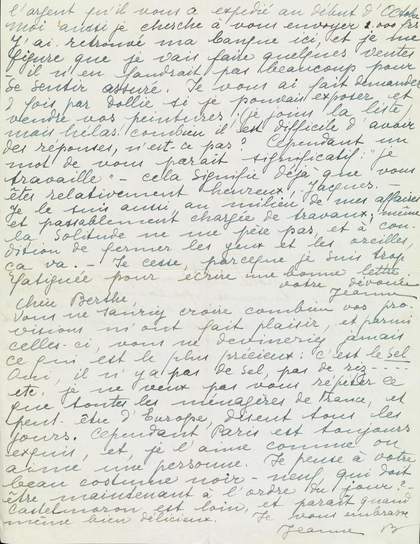 l'argent qu'il vous a expédié au début d'Octobre
Moi aussi je cherche à vous envoyer 2.000 frs
J'ai retrouvé ma banque ici, et je me
figure que je vais faire quelques ventes
il n'en faudrait pas beaucoup pour
se sentir assuré. Je vous ai fait demander
2 fois par Dollie si je pouvais exposer et
vendre vos peintures; je joins la liste,
mais hélas combien il est difficile d'avoir
des réponses, n'est-ce pas? Cependant un
mot de vous paraît "significatif": "je
travaille" - cela signifie déjà que vous
êtes relativement heureux, Jacques. -
Je le suis aussi au milieu de mes affaires
et passablement chargée de travaux, même
la solitude ne me pèse pas, et à con-
dition de fermer les yeux et les oreilles
ça va. - Je cesse, parceque je suis trop
fatiguée pour écrire une bonne lettre
votre dévouée
Jeanne
Chère Berthe,
Vous ne sauriez croire combien vos pro-
visions m'ont fait plaisir, et parmi
celles-ci, vous ne devineriez jamais
ce qui est le plus précieux: c'est le sel
Oui, il n'y a pas de sel, pas de riz ----
etc. je ne veux pas vous répéter ce
que toutes les ménagères de France, et
peut être d'Europe, disent tous les
jours. Cependant Paris est toujours
exquis, et, je l'aime comme on
aime une personne. Je pense à votre
beau costume noir - neuf, qui doit
être maintenant à l'ordre du jour? -
Castelmoron est loin, et paraît quand
même bien délicieux. Je vous embrasse
Jeanne B